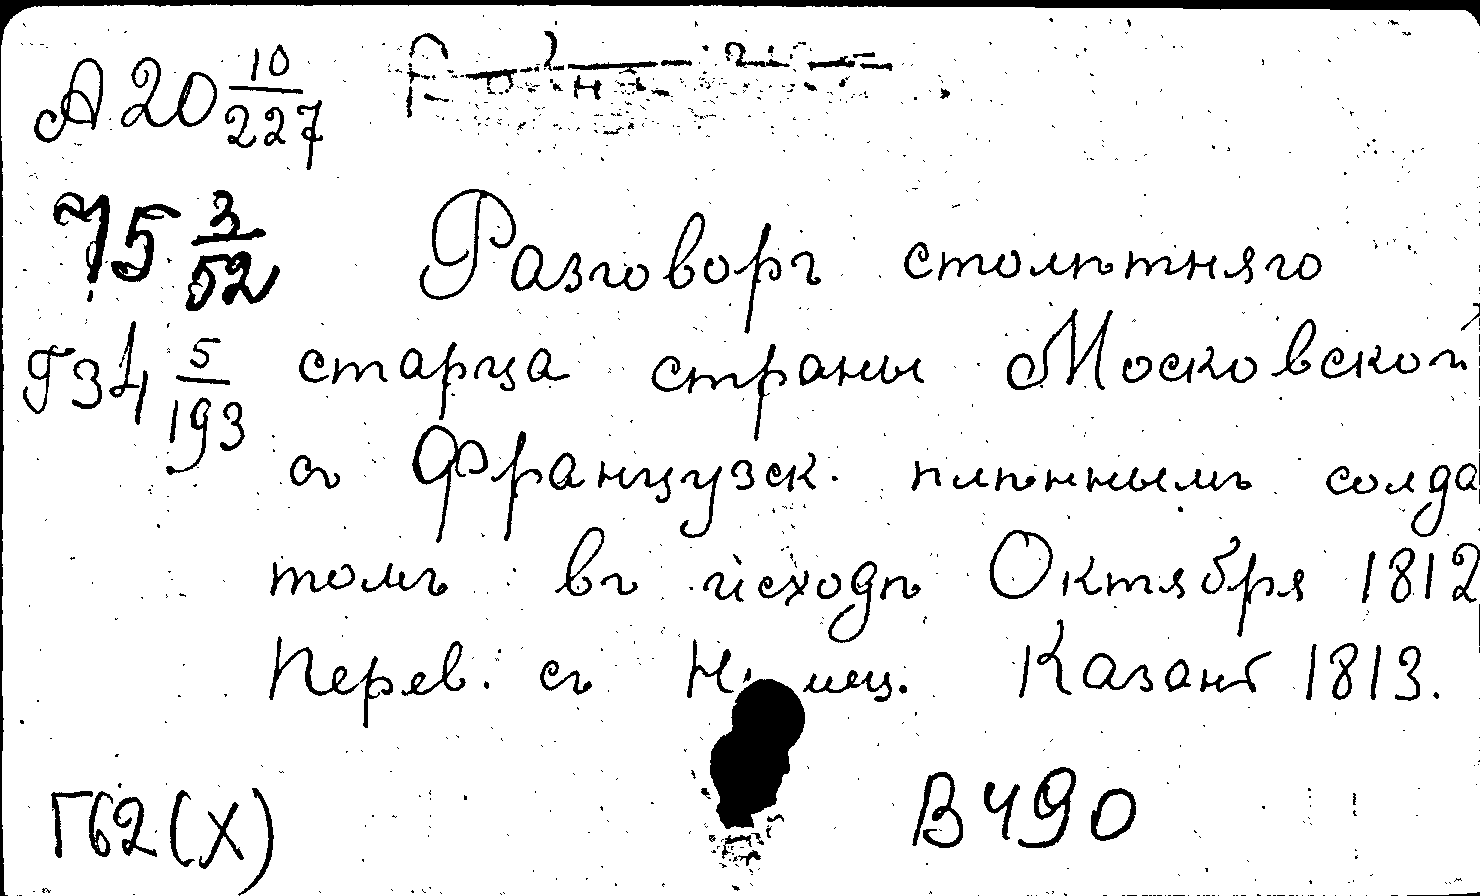 А 20 10/227
75 3/52 Разговоръ столѣтняго
Г34 5/193 старца страны Московской
съ Французск. плѣннымъ солда
томъ въ исходѣ Октября 1812
Перев. съ Нѣмец. Казань 1813.
Г62(X) В490